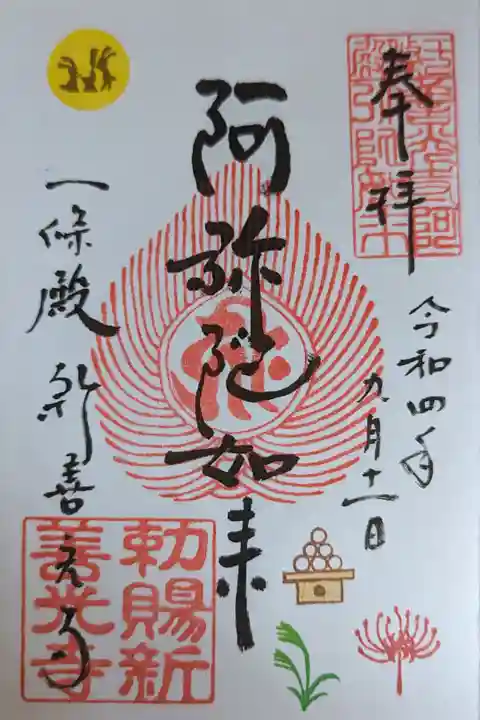 奉拝
令和四年
九月十一日
阿弥陀如来
一條殿 新善光寺
勅賜新
善光寺